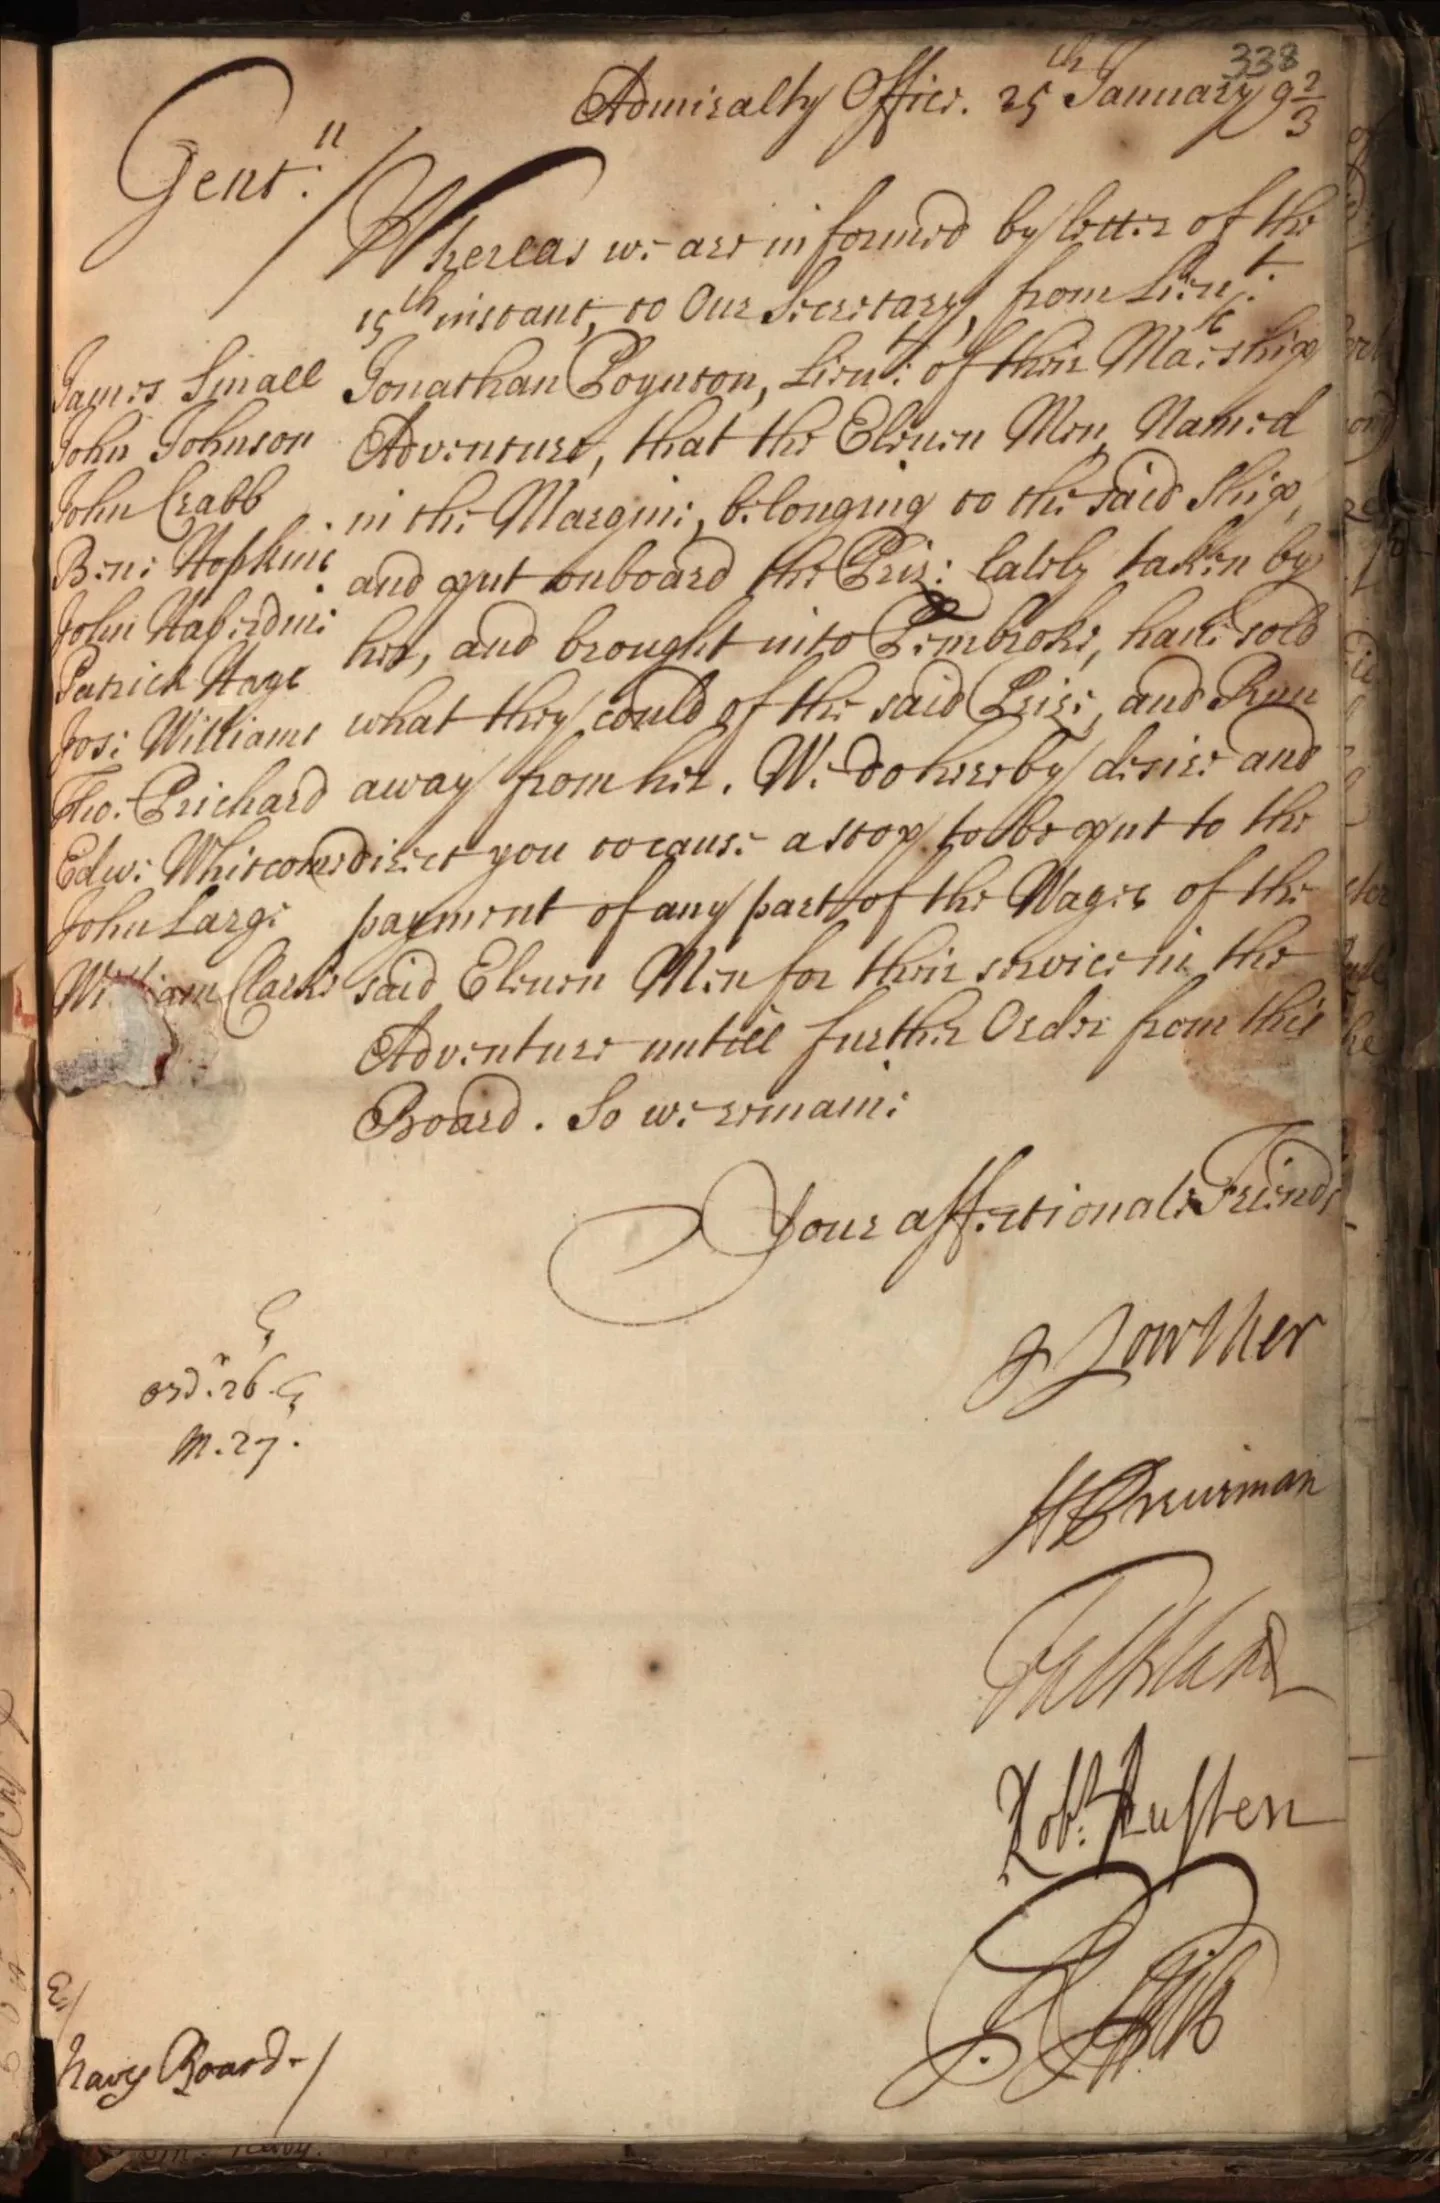 338
Admiralty Office. 25th January 92/3
Gent:n
Whereas we are informed by letter of the
15th instant, to Our Secretary, from Lieut.
Jonathan Poynton, Lieut: of their Mats. ship
Adventure, that the Eleven Men, Named
in the Margine, belonging to the said Ship,
and put onboard the Prize lately taken by
her, and brought into Pembroke, have sold
what they could of the said Prize, and Run
away from her. We do hereby desire and
direct you to cause a stop to be put to the
payment of any part of the Wages of the
said Eleven Men for their service in the
Adventure untill further Order from this
Board. So we remaine
James Small
John Johnson
John Crabb
Ben: Hopkins
John Haberdine
Patrick Hays
Jos: Williams
Tho: Prichard
Edw: Whitcombe
John Large
William Clarke
Your affectionate Friends
J Lowther
H Priestman
Falkland
Robt: Austen
R Rich
ord.r 26.
M. 27.
Navy Board